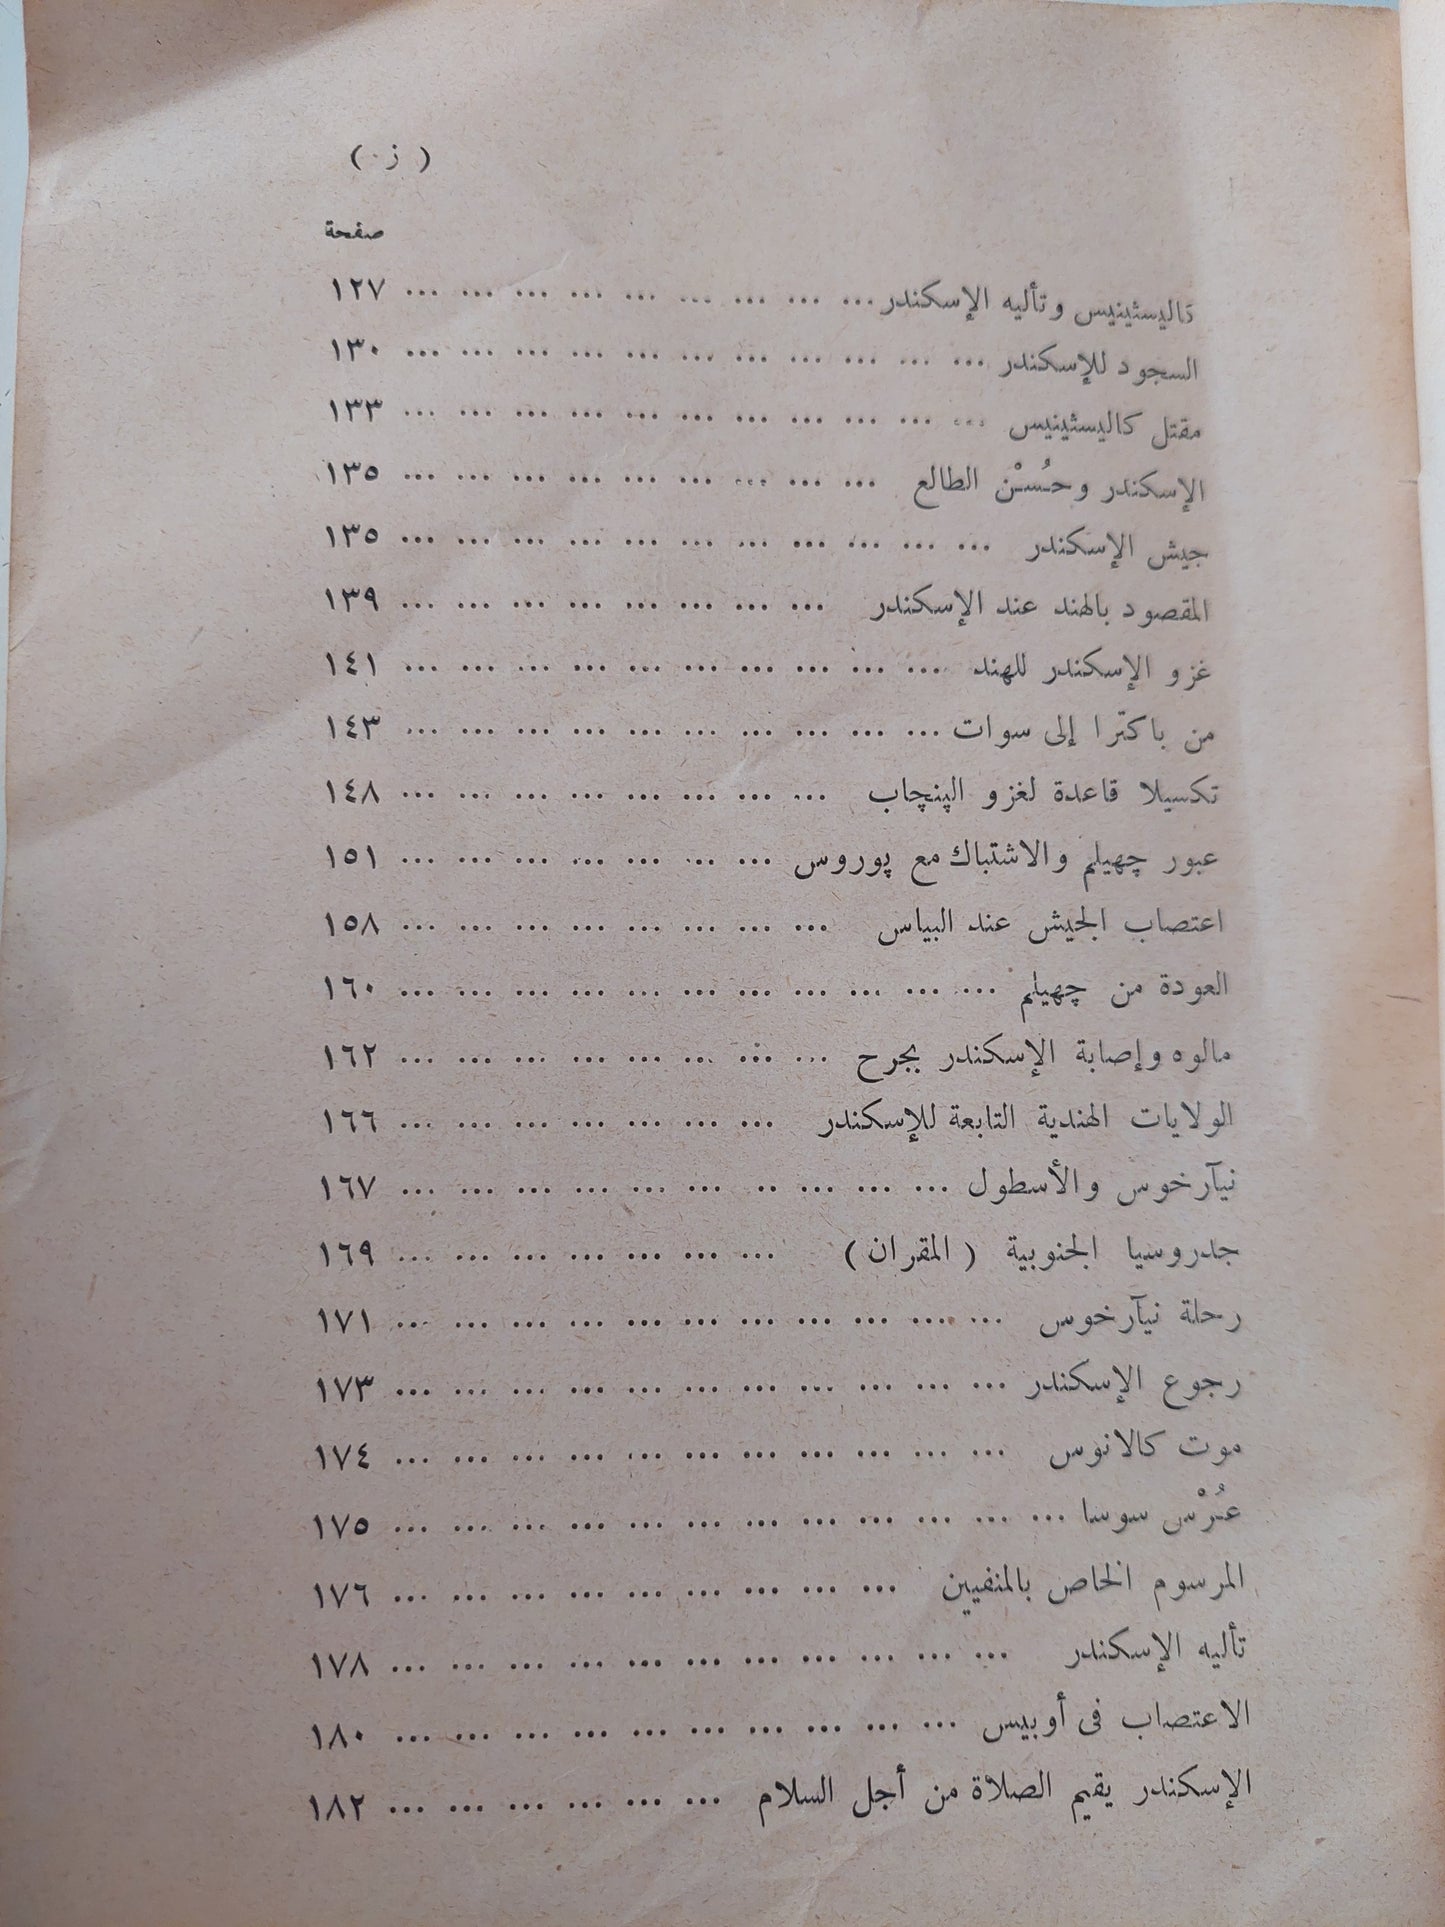 ( ز )
صفحة
كاليسثينيس وتأليه الإسكندر ... ... ... ... ... ... ... ... ... ١٢٧
السجود للإسكندر ... ... ... ... ... ... ... ... ... ... ... ١٣٠
مقتل كاليسثينيس ... ... ... ... ... ... ... ... ... ... ... ١٣٣
الإسكندر وحُسْن الطالع ... ... ... ... ... ... ... ... ... ١٣٥
جيش الإسكندر ... ... ... ... ... ... ... ... ... ... ... ١٣٥
المقصود بالهند عند الإسكندر ... ... ... ... ... ... ... ... ١٣٩
غزو الإسكندر للهند ... ... ... ... ... ... ... ... ... ... ١٤١
من باكترا إلى سوات ... ... ... ... ... ... ... ... ... ... ١٤٣
تكسيلا قاعدة لغزو الپنچاب ... ... ... ... ... ... ... ... ١٤٨
عبور چهيلم والاشتباك مع پوروس ... ... ... ... ... ... ... ١٥١
اعتصاب الجيش عند البياس ... ... ... ... ... ... ... ... ١٥٨
العودة من چهيلم ... ... ... ... ... ... ... ... ... ... ... ١٦٠
مالوه وإصابة الإسكندر بجرح ... ... ... ... ... ... ... ... ١٦٢
الولايات الهندية التابعة للإسكندر ... ... ... ... ... ... ... ١٦٦
نيآرخوس والأسطول ... ... ... ... ... ... ... ... ... ... ١٦٧
جدروسيا الجنوبية ( المقران ) ... ... ... ... ... ... ... ١٦٩
رحلة نيآرخوس ... ... ... ... ... ... ... ... ... ... ... ١٧١
رجوع الإسكندر ... ... ... ... ... ... ... ... ... ... ... ١٧٣
موت كالانوس ... ... ... ... ... ... ... ... ... ... ... ١٧٤
عُرْس سوسا ... ... ... ... ... ... ... ... ... ... ... ... ١٧٥
المرسوم الخاص بالمنفيين ... ... ... ... ... ... ... ... ... ١٧٦
تأليه الإسكندر ... ... ... ... ... ... ... ... ... ... ... ١٧٨
الاعتصاب فى أوبيس ... ... ... ... ... ... ... ... ... ... ١٨٠
الإسكندر يقيم الصلاة من أجل السلام ... ... ... ... ... ... ١٨٢